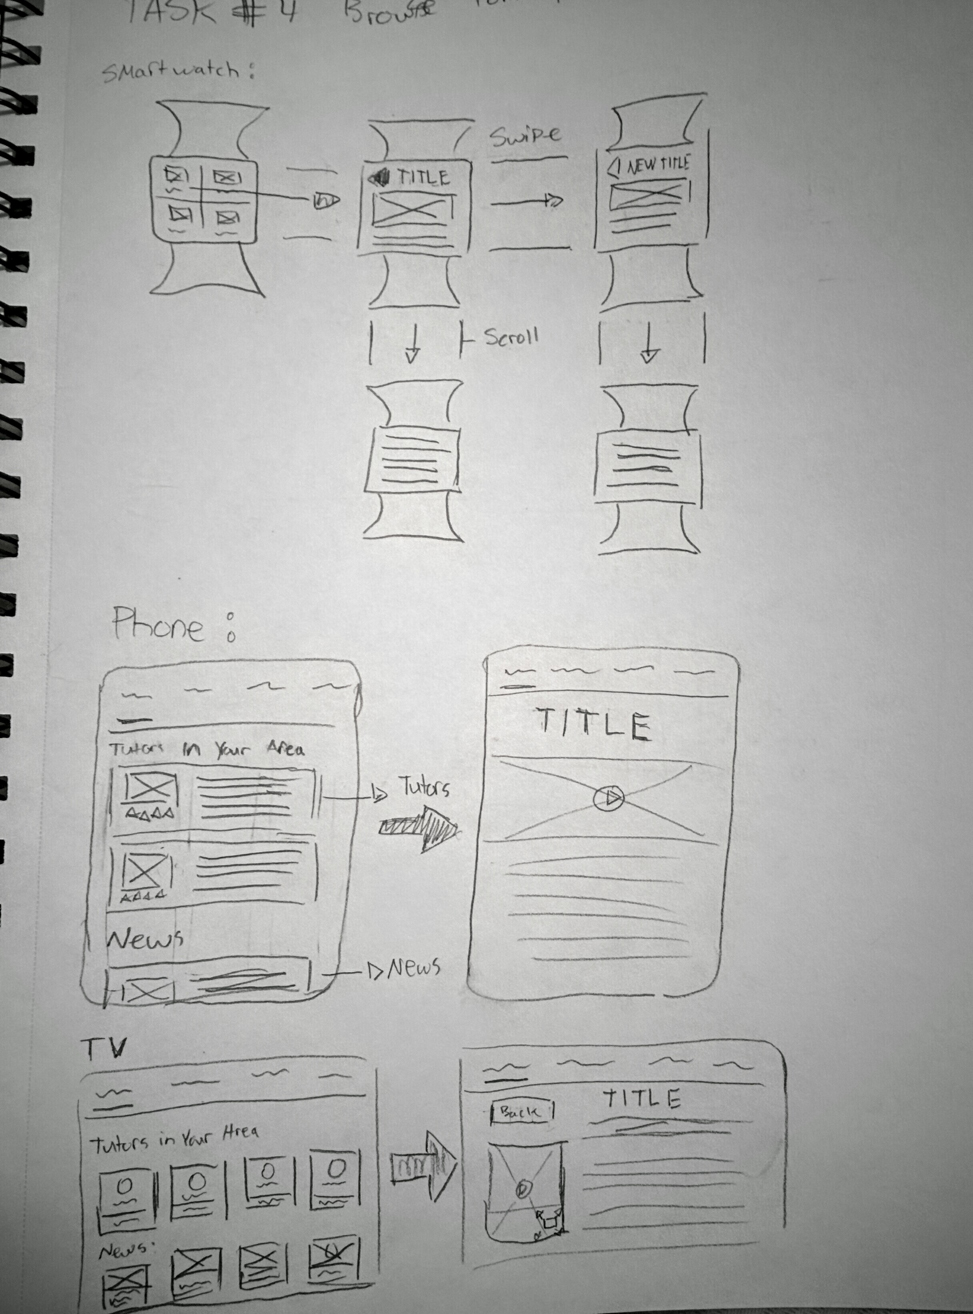 TASK # 4 Browse
Smartwatch:
TITLE
Swipe
NEW TITLE
Scroll
Phone:
Tutors In Your Area
Tutors
News
News
TITLE
TV
Tutors in Your Area
News:
Back
TITLE